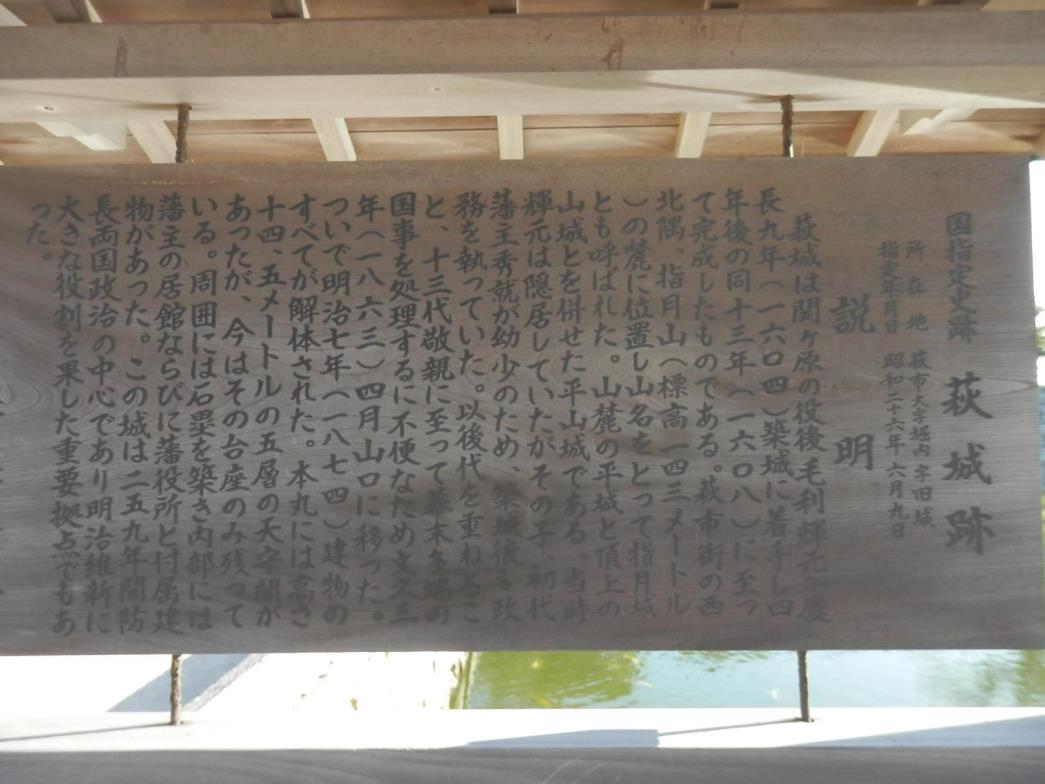 国指定史跡 萩城跡
所在地 萩市大字堀内字旧城
指定年月日 昭和二十六年六月九日
説明
萩城は関ヶ原の役後毛利輝元が慶
長九年(一六〇四)築城に着手し四
年後の同十三年(一六〇八)に至っ
て完成したものである。萩市街の西
北隅、指月山(標高一四三メートル
)の麓に位置し山名をとって指月城
とも呼ばれた。山麓の平城と頂上の
山城とを併せた平山城である。当時
輝元は隠居していたがその子、初代
藩主秀就が幼少のため、築城後も政
務を執っていた。以後代を重ねるこ
と、十三代敬親に至って幕末多端の
国事を処理するに不便なため文久三
年(一八六三)四月山口に移った。
ついで明治七年(一八七四)建物の
すべてが解体された。本丸には高さ
十四、五メートルの五層の天守閣が
あったが、今はその台座のみ残って
いる。周囲には石塁を築き内部には
藩主の居館ならびに藩役所と付属建
物があった。この城は二五九年間防
長両国政治の中心であり明治維新に
大きな役割を果した重要拠点でもあ
った。